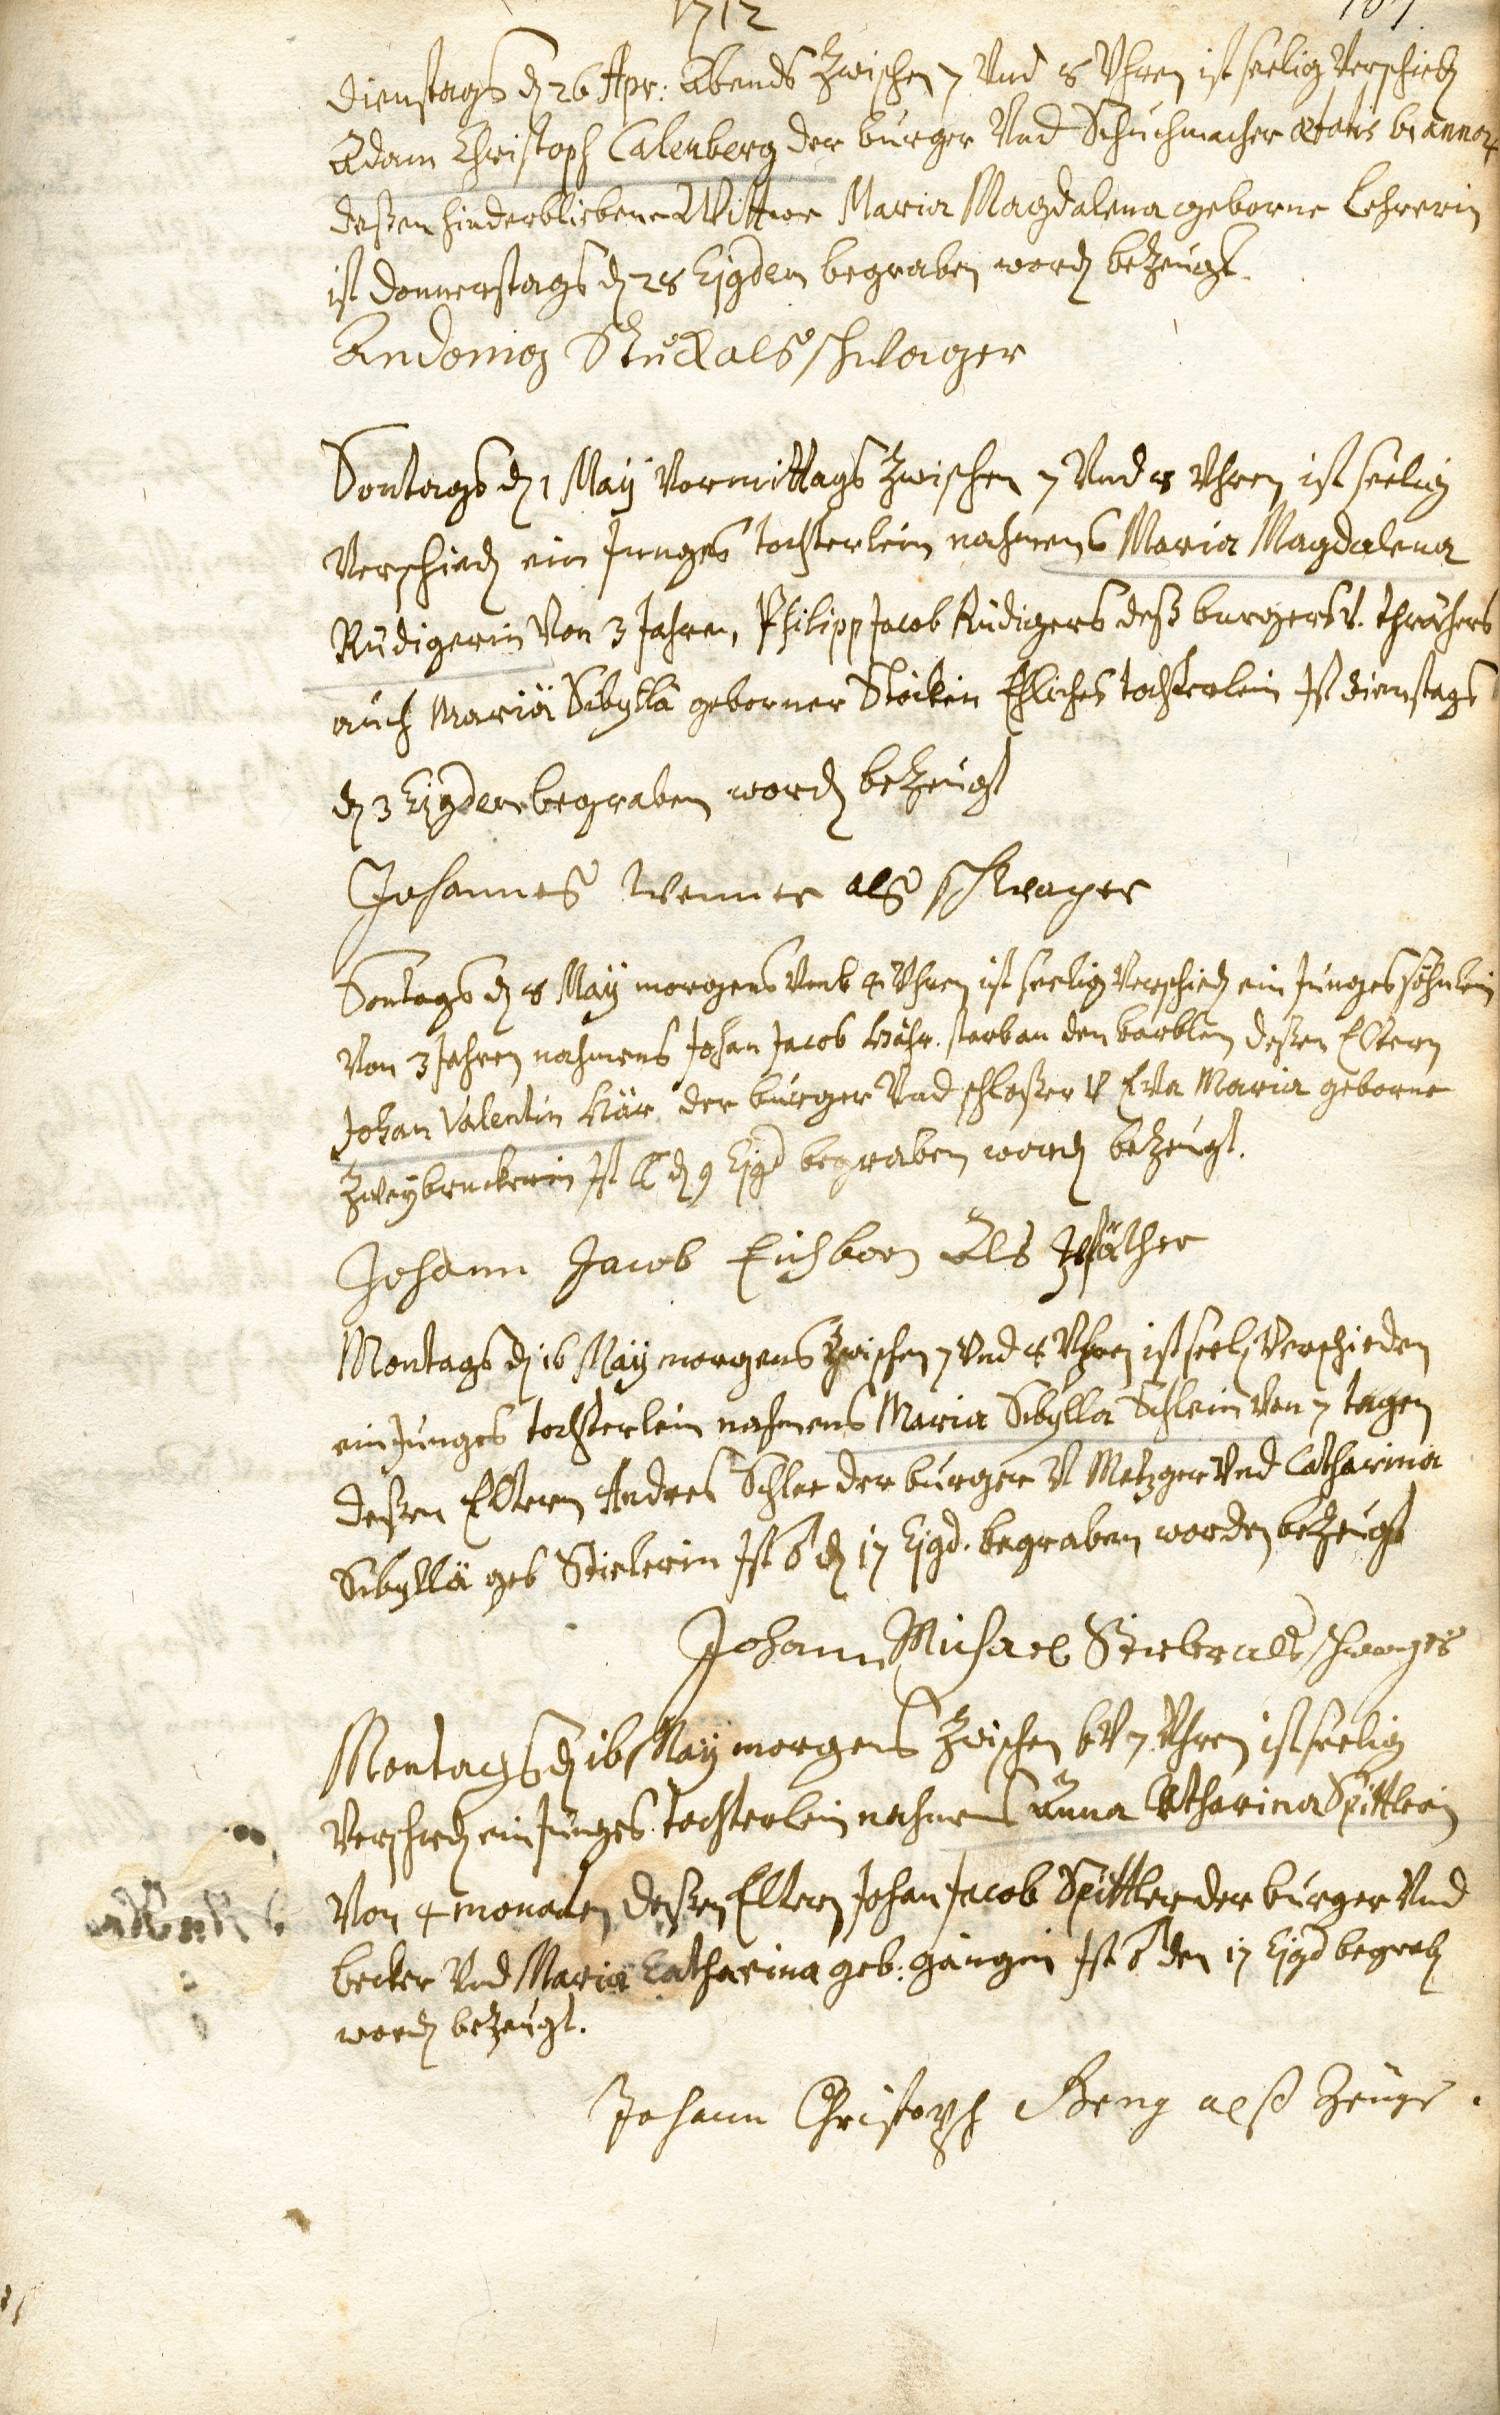 1712
Dienstags d 26 Apr: Abends Zwischen 7 Vnd 8 Vhren ist seelig Verschied
Adam Christoph Calenberg der burger Vnd Schuchmacher ætatis 61 annor
deßen hinderbliebene Wittwe Maria Magdalena geborne Lehrerin
ist Donnerstags d 28 Ejgdem begraben word bezeugt.
Andonig Stuck als schwager
Sontags d 1 May Vormittags Zwischen 7 Vnd 8 Vhren ist seelig
Verschied ein Junges tochterlein nahmens Maria Magdalena
Rüdigerin Von 3 Jahren, Philipp Jacob Rüdigers deß burgers V.
auch Mariä Sibyllä geborner Stöckin Ehliches tochterlein Ist dienstags
d 3 Ejgdem begraben word bezeugt
Johannes Wenner als schwager
Sontags d 8 May morgens Vmb 4 Vhren ist seelig Verschied ein Junges söhnlein
Von 3 Jahren nahmens Johan Jacob starb an den barblen deßen Eltern
Johan Valentin Bär der burger Vnd schloßer V Eva Maria geborne
Zweybruckerin Ist d 9 Ejgd begraben word bezeugt.
Johann Jacob Eichborn Als
Montags d 16 May morgens Zwischen 7 Vnd 8 Vhren ist seel Verschieden
ein Junges tochterlein nahmens Maria Sibylla Schlein Von 7 tagen
deßen Eltern Andres Schlee der burger V Metzger Vnd Catharina
Sibyllä geb Stielerin Ist d 17 Ejgd. begraben worden bezeugt
Johann Michael Stieler als schwager
Montags d 16 May morgens Zwischen 6 V 7 Vhren ist seelig
Verschied ein Junges tochterlein nahmens Anna Catharina Spittlerin
Von 4 monaten deßen Eltern Johan Jacob Spittler der burger Vnd
becker Vnd Maria Catharina geb: gängin Ist den 17 Ejgd begrab
word bezeugt.
Johann Christoph Geng alß Zeuge.